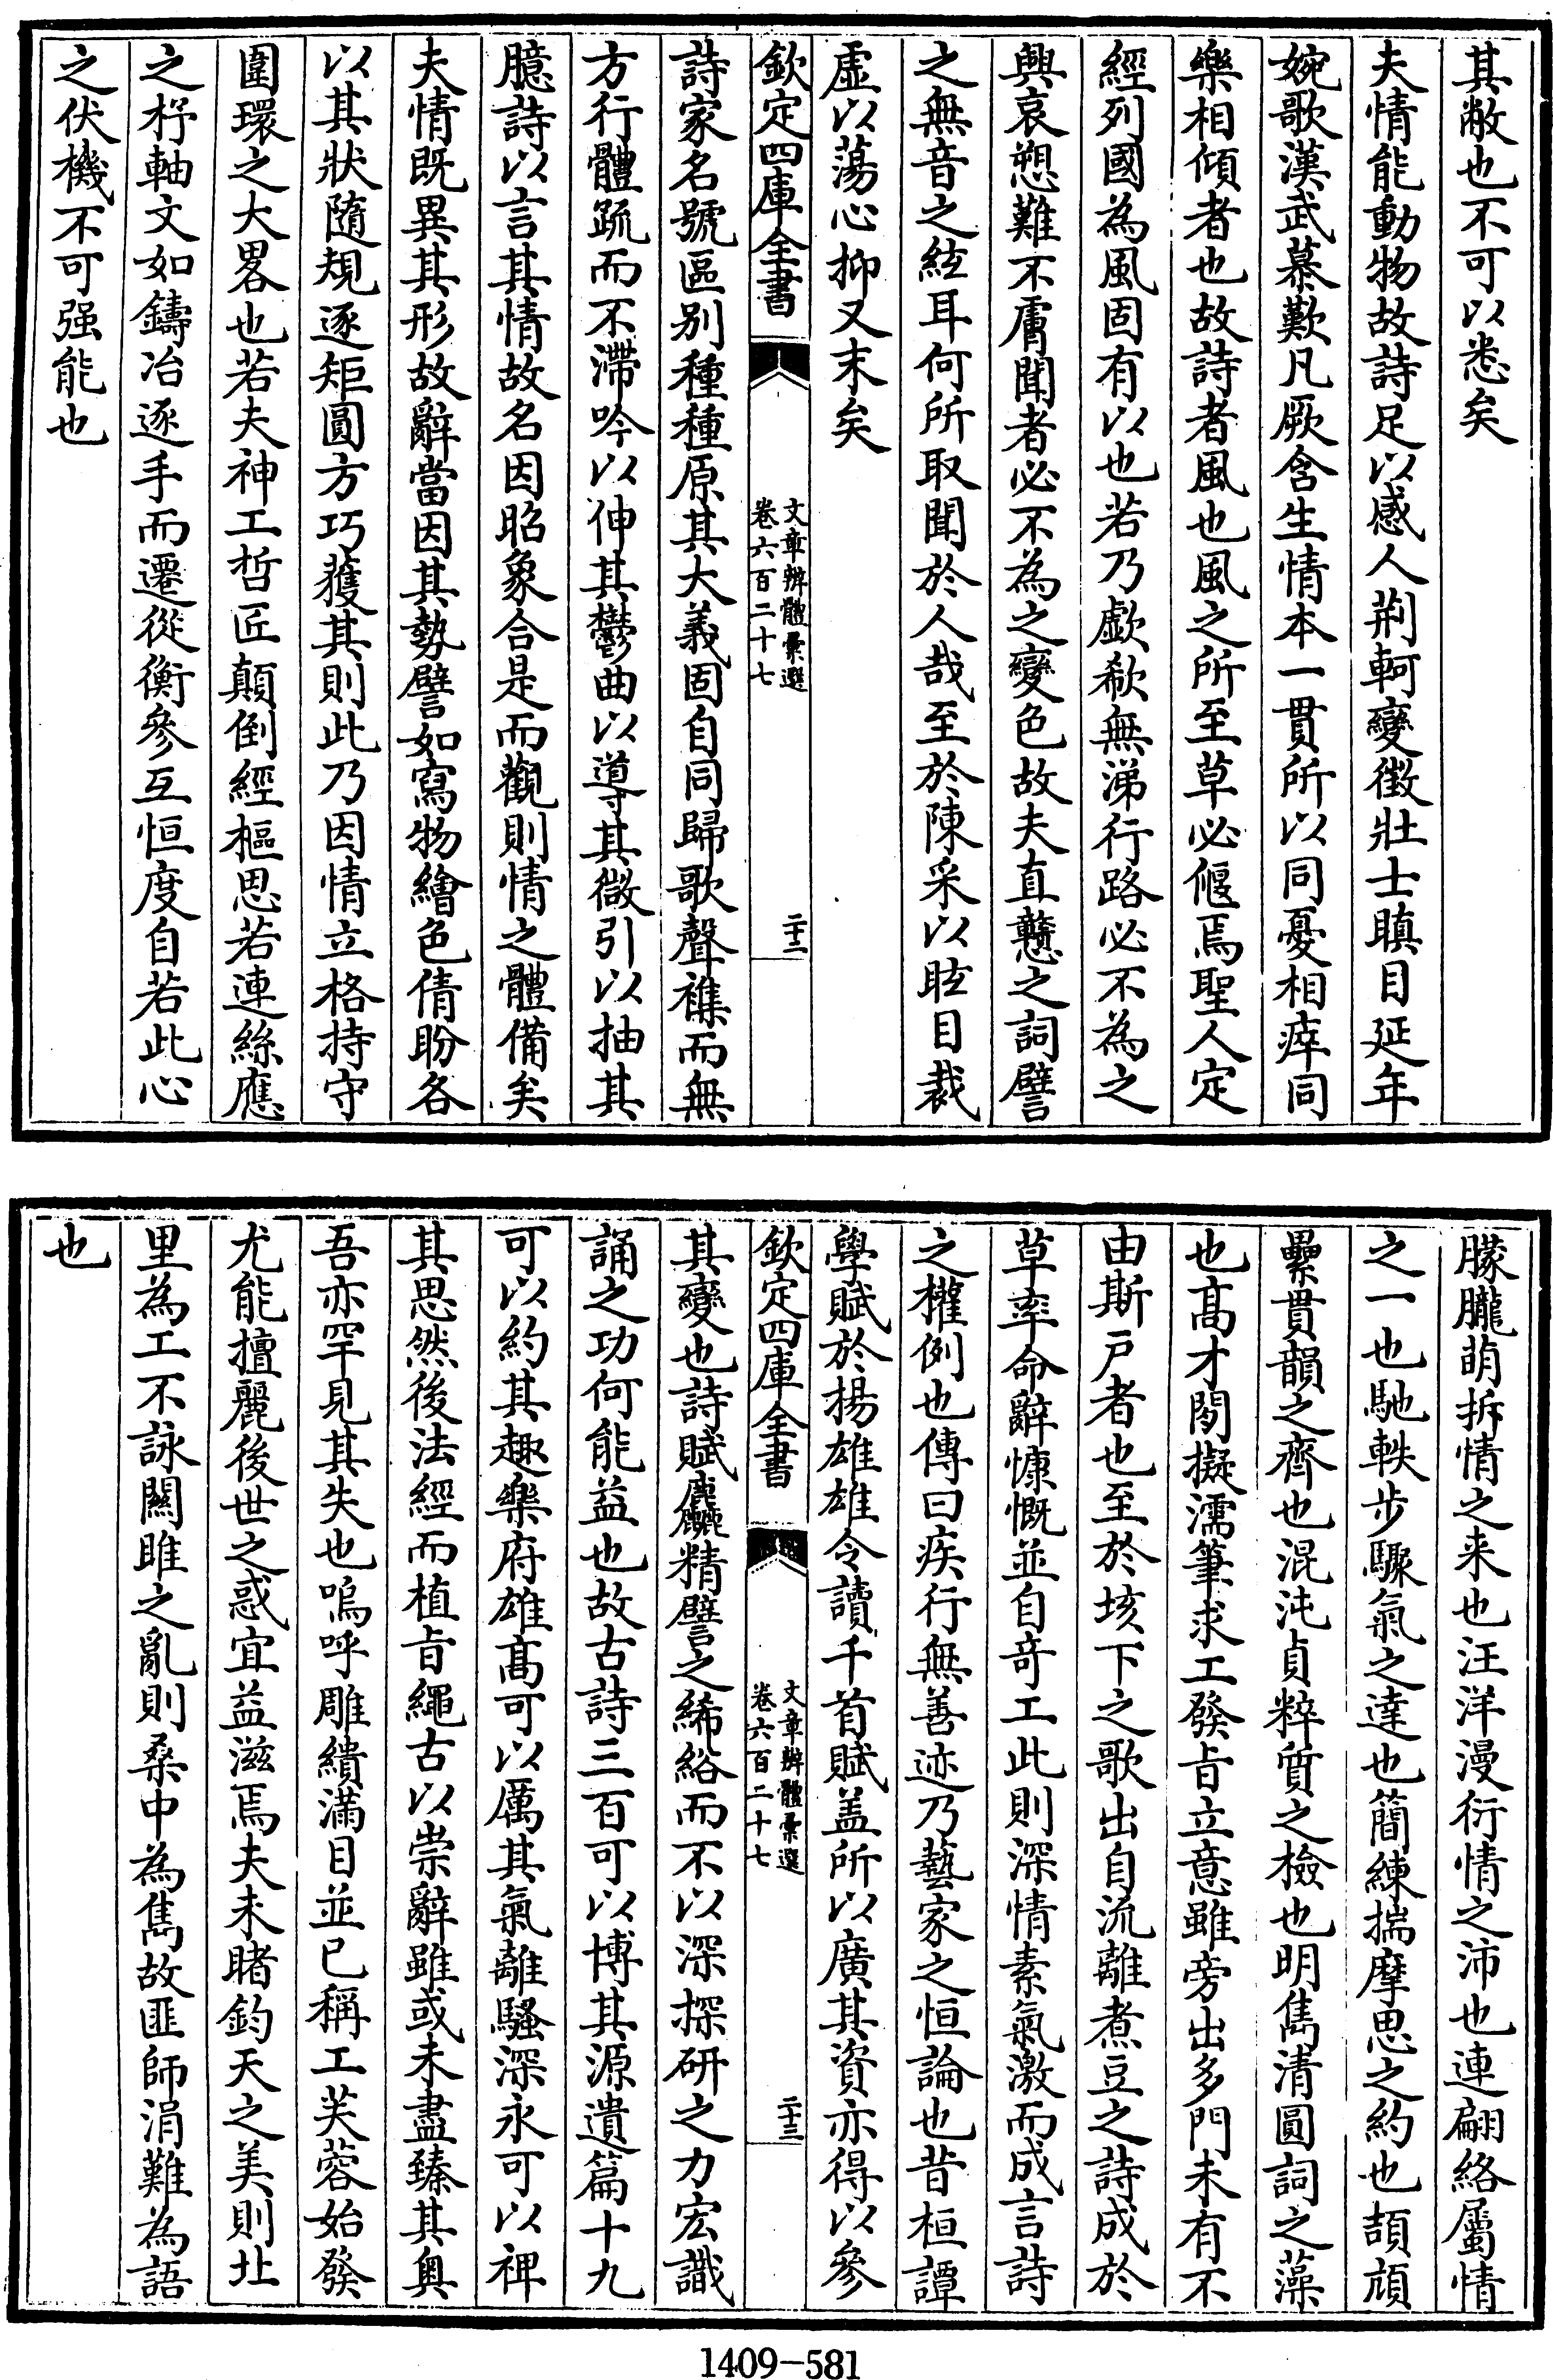 其敝也不可以悉矣
夫情能動物故詩足以感人荆軻變徵壯士瞋目延年
婉歌漢武慕歎凡厥含生情本一貫所以同憂相瘁同
樂相傾者也故詩者風也風之所至草必偃焉聖人定
經列國為風固有以也若乃歔欷無涕行路必不為之
興哀愬難不膚聞者必不為之變色故夫直戇之詞譬
之無音之絃耳何所取聞於人哉至於陳采以眩目裁
虛以蕩心抑又末矣
欽定四庫全書
文章辨體彙選
卷六百二十七
二十二
詩家名號區别種種原其大義固自同歸歌聲襍而無
方行體疏而不滯吟以伸其鬱曲以導其微引以抽其
臆詩以言其情故名因昭象合是而觀則情之體備矣
夫情既異其形故辭當因其勢譬如寫物繪色倩盼各
以其狀隨規逐矩圓方巧獲其則此乃因情立格持守
圍環之大畧也若夫神工哲匠顛倒經樞思若連絲應
之杼軸文如鑄冶逐手而遷從衡參互恒度自若此心
之伏機不可强能也
朦朧萌拆情之来也汪洋漫衍情之沛也連翩絡屬情
之一也馳軼步驟氣之達也簡練揣摩思之約也頡頏
纍貫韻之齊也混沌貞粹質之檢也明雋清圓詞之藻
也髙才閒擬濡筆求工發旨立意雖旁出多門未有不
由斯戸者也至於垓下之歌出自流離煮豆之詩成於
草率命辭慷慨並自奇工此則深情素氣激而成言詩
之權例也傳曰疾行無善迹乃藝家之恒論也昔桓譚
學賦於揚雄雄令讀千首賦盖所以廣其資亦得以參
欽定四庫全書
文章辨體彙選
卷六百二十七
二十三
其變也詩賦麤精譬之絺綌而不以深探研之力宏識
誦之功何能益也故古詩三百可以博其源遺篇十九
可以約其趣樂府雄髙可以厲其氣離騷深永可以裨
其思然後法經而植旨繩古以崇辭雖或未盡臻其奥
吾亦罕見其失也嗚呼雕繢滿目並已稱工芙蓉始發
尤能擅麗後世之惑宜益滋焉夫未睹鈞天之美則北
里為工不詠闗雎之亂則桑中為雋故匪師涓難為語
也
1409-581